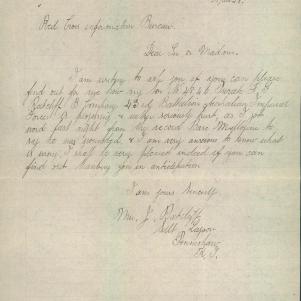 Red Cross information Bureau.
Dear Sir or Madam.
I am writing to ask you if you can please
find out for me how my son No 4546 Private F. G
Radcliff B Company 43rd Battalion Australian Imperial
Force is progressing & seriously hurt, as I got
word last night from the record Base Melbourne to
say he was wounded, & I am very anxious to know what
is wrong I shall be very pleased indeed if you can
find out thanking you in anticipation
I am yours Sincerely.
Mrs J.
Salt Lagoon
Penneshaw
K. I.